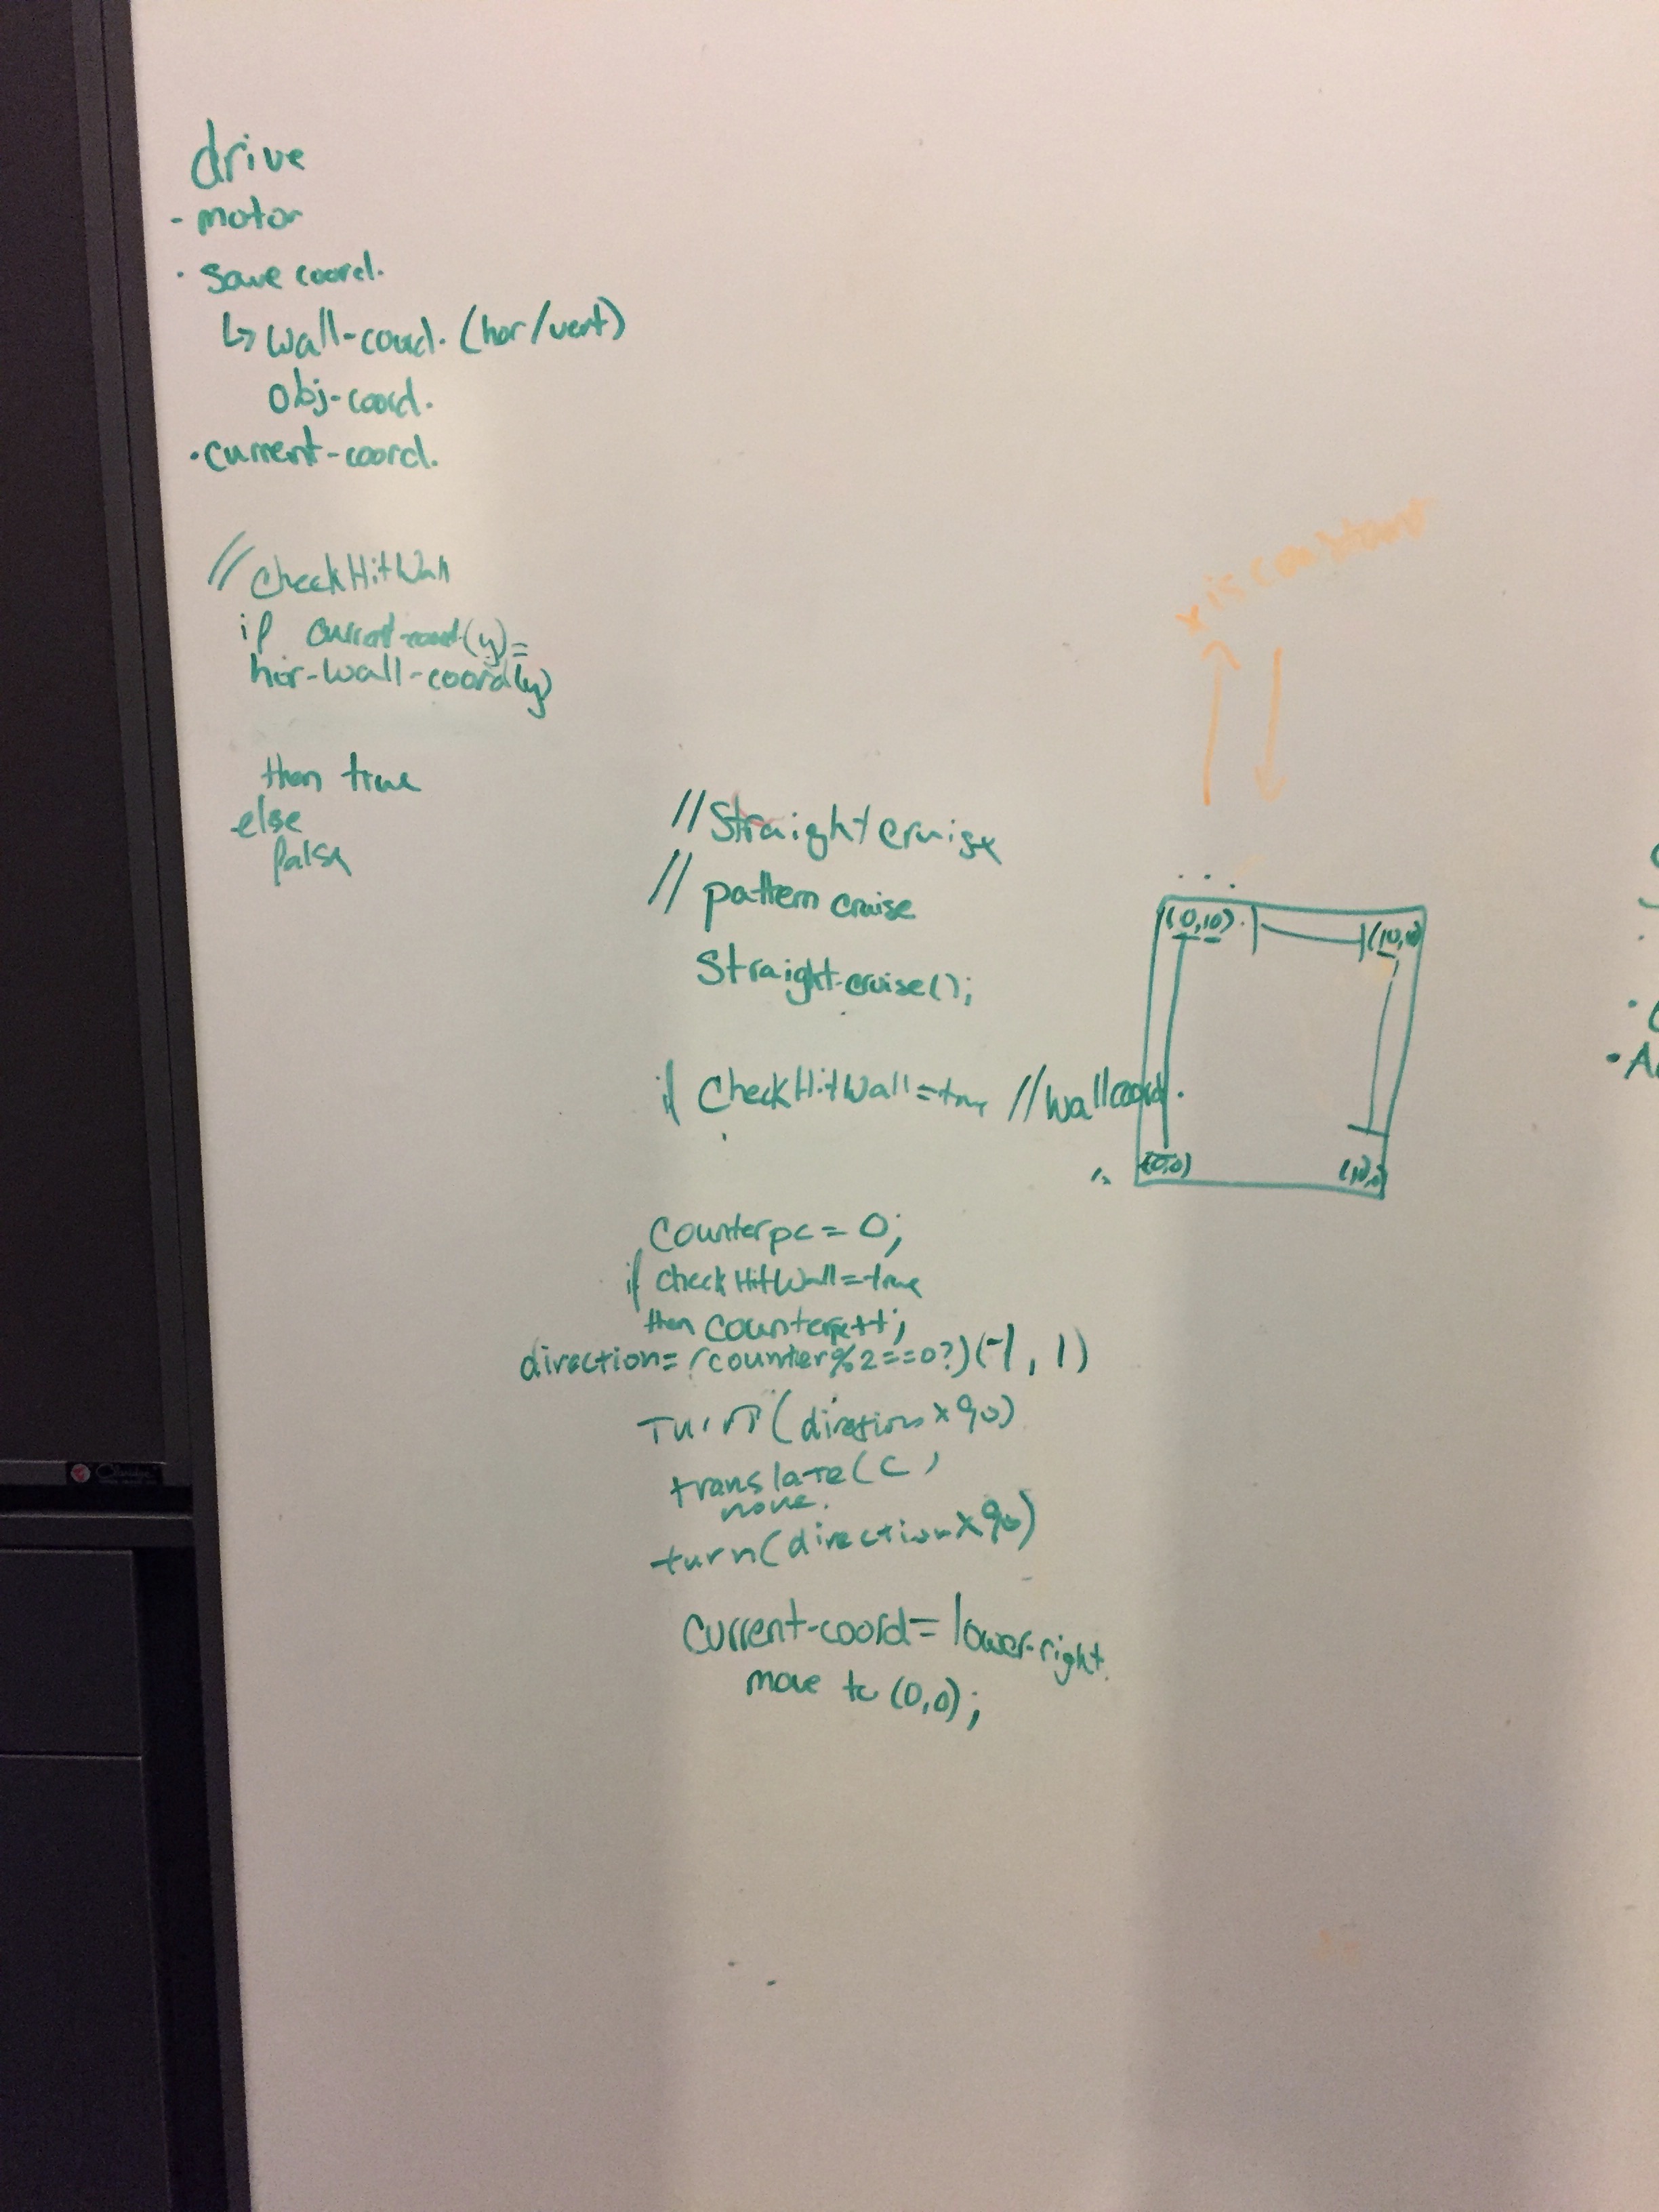 drive
- motor
· save coord.
↳ wall-coord. (hor/vert)
obj-coord.
· current-coord.
// CheckHitWall
if current-coord(y)=
hor-wall-coord(y)
then true
else
false
x is constant
// Straight cruise
// pattern cruise
Straight-cruise();
if CheckHitWall=true //wallcoord.
(0,10)
(10,10)
(0,0)
(10,0)
Counterpc = 0;
if checkHitWall=true
then counterpc++;
direction=(counter%2==0?)(-1, 1)
Turn(direction x 90)
translate(C)
turn(direction x 90)
Current-coord= lower-right.
move to (0,0);